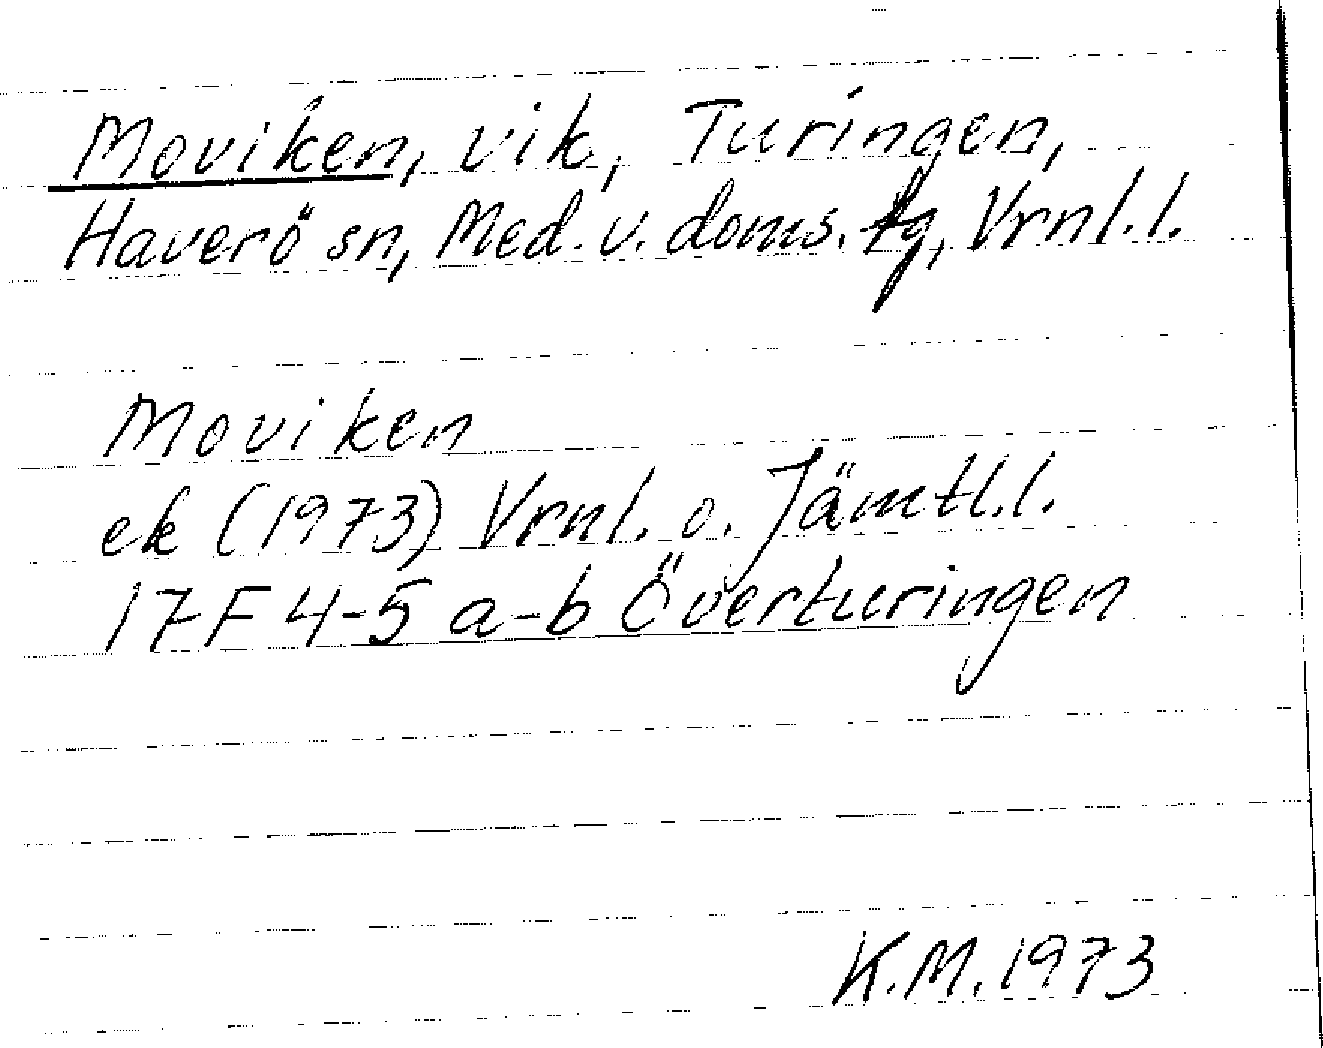 Moviken, vik, Turingen,
Haverö sn, Med. v. doms. tg, Vrnl. l.
Moviken
ek (1973) Vrnl. o. Jämtl. l.
17F 4-5 a-b Överturingen
K.M. 1973